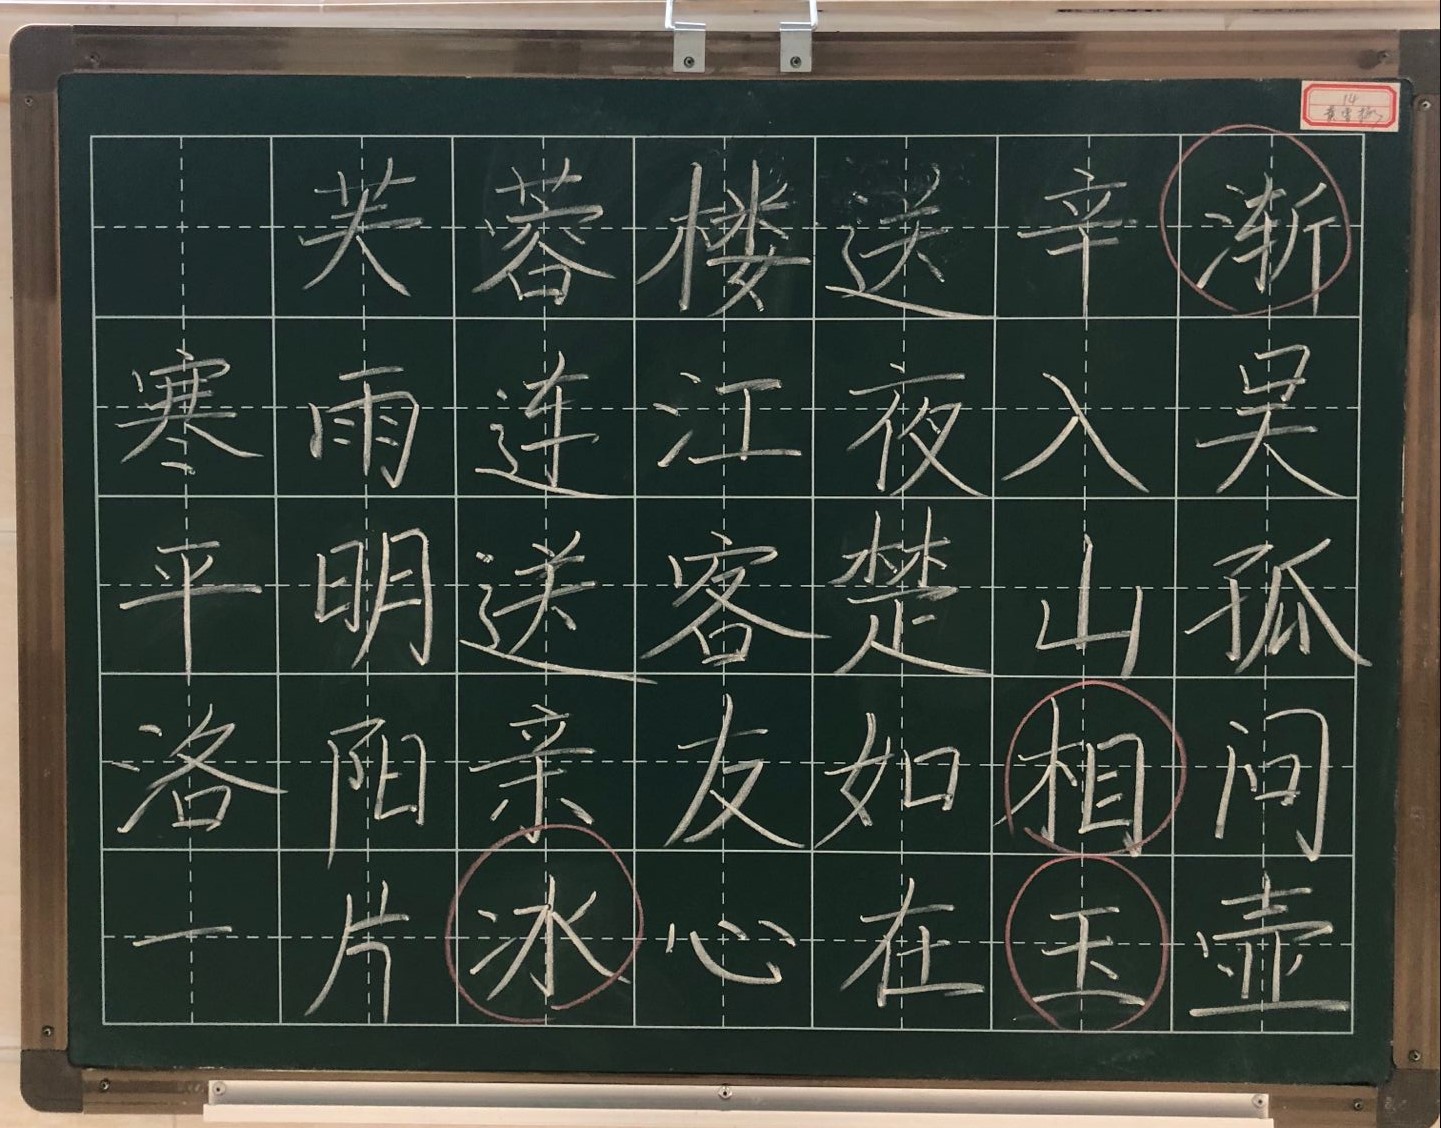 14
芙蓉楼送辛渐
寒雨连江夜入吴
平明送客楚山孤
洛阳亲友如相问
一片冰心在玉壶